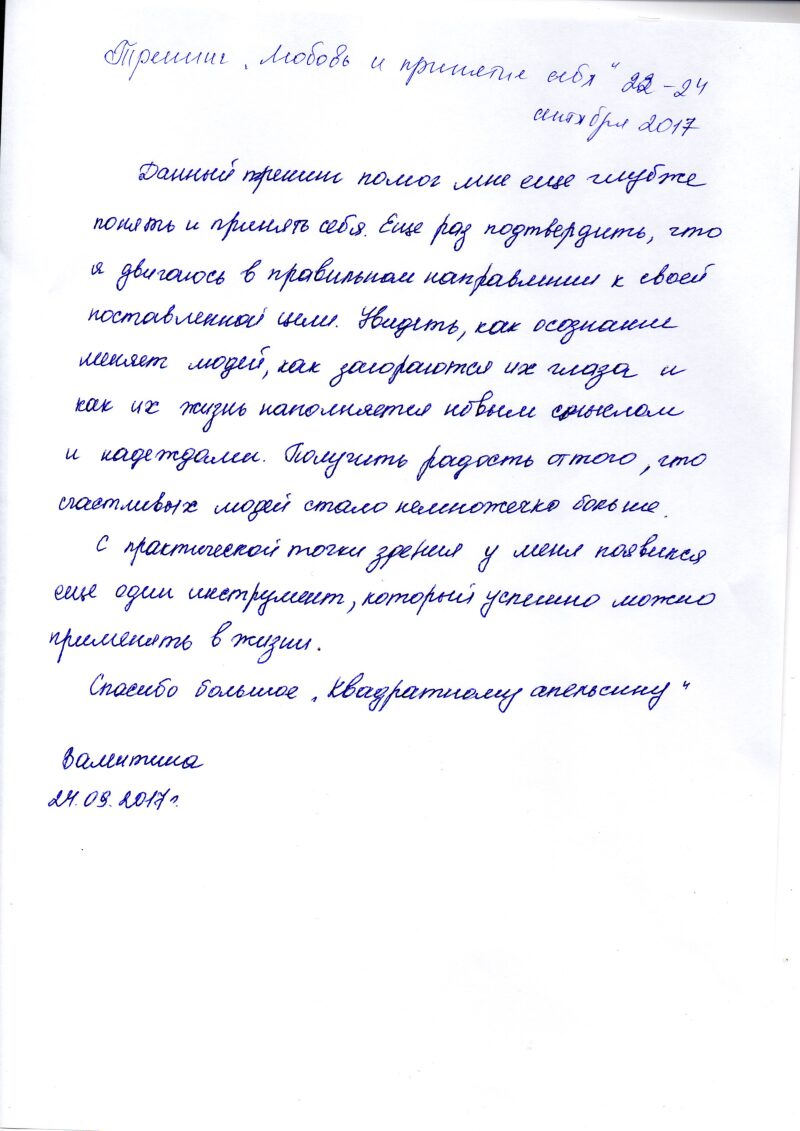 Тренинг „Любовь и принятие себя" 22-24
сентября 2017
Данный тренинг помог мне еще глубже
понять и принять себя. Еще раз подтвердить, что
я двигаюсь в правильном направлении к своей
поставленной цели. Увидеть, как осознание
меняет людей, как загораются их глаза и
как их жизнь наполняется новым смыслом
и надеждами. Получить радость оттого, что
счастливых людей стало немножечко больше.
С практической точки зрения у меня появился
еще один инструмент, который успешно можно
применять в жизни.
Спасибо большое „Квадратному апельсину"
Валентина
24.09.2017г.